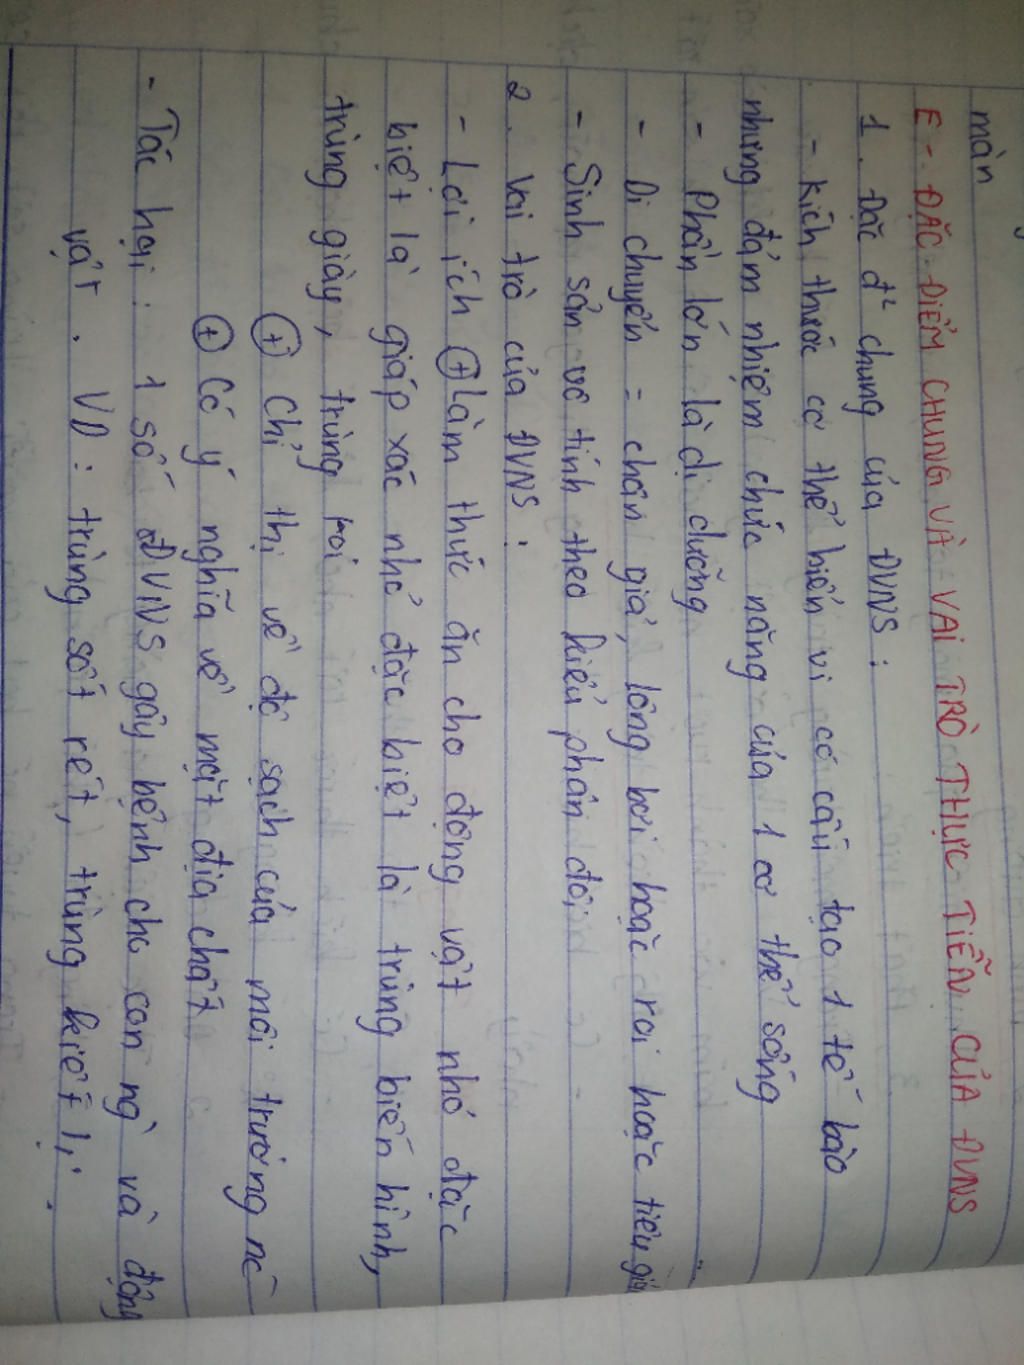 màn
E - ĐẶC ĐIỂM CHUNG VÀ VAI TRÒ THỰC TIỄN CỦA ĐVNS
1. Đặc đ² chung của ĐVNS :
- Kích thước cơ thể hiển vi có cấu tạo 1 tế bào
nhưng đảm nhiệm chức năng của 1 cơ thể sống
- Phần lớn là dị dưỡng
- Di chuyển = chân giả, lông bơi hoặc roi hoặc tiêu giảm
- Sinh sản vô tính theo kiểu phân đôi
2. Vai trò của ĐVNS :
- Lợi ích ⊕ Làm thức ăn cho động vật nhỏ đặc
biệt là giáp xác nhỏ đặc biệt là trùng biến hình,
trùng giày, trùng roi
⊕ Chỉ thị về độ sạch của môi trường nc
⊕ Có ý nghĩa về mặt địa chất
- Tác hại : 1 số ĐVNS gây bệnh cho con ng` và động
vật . VD : trùng sốt rét, trùng kiết lị .